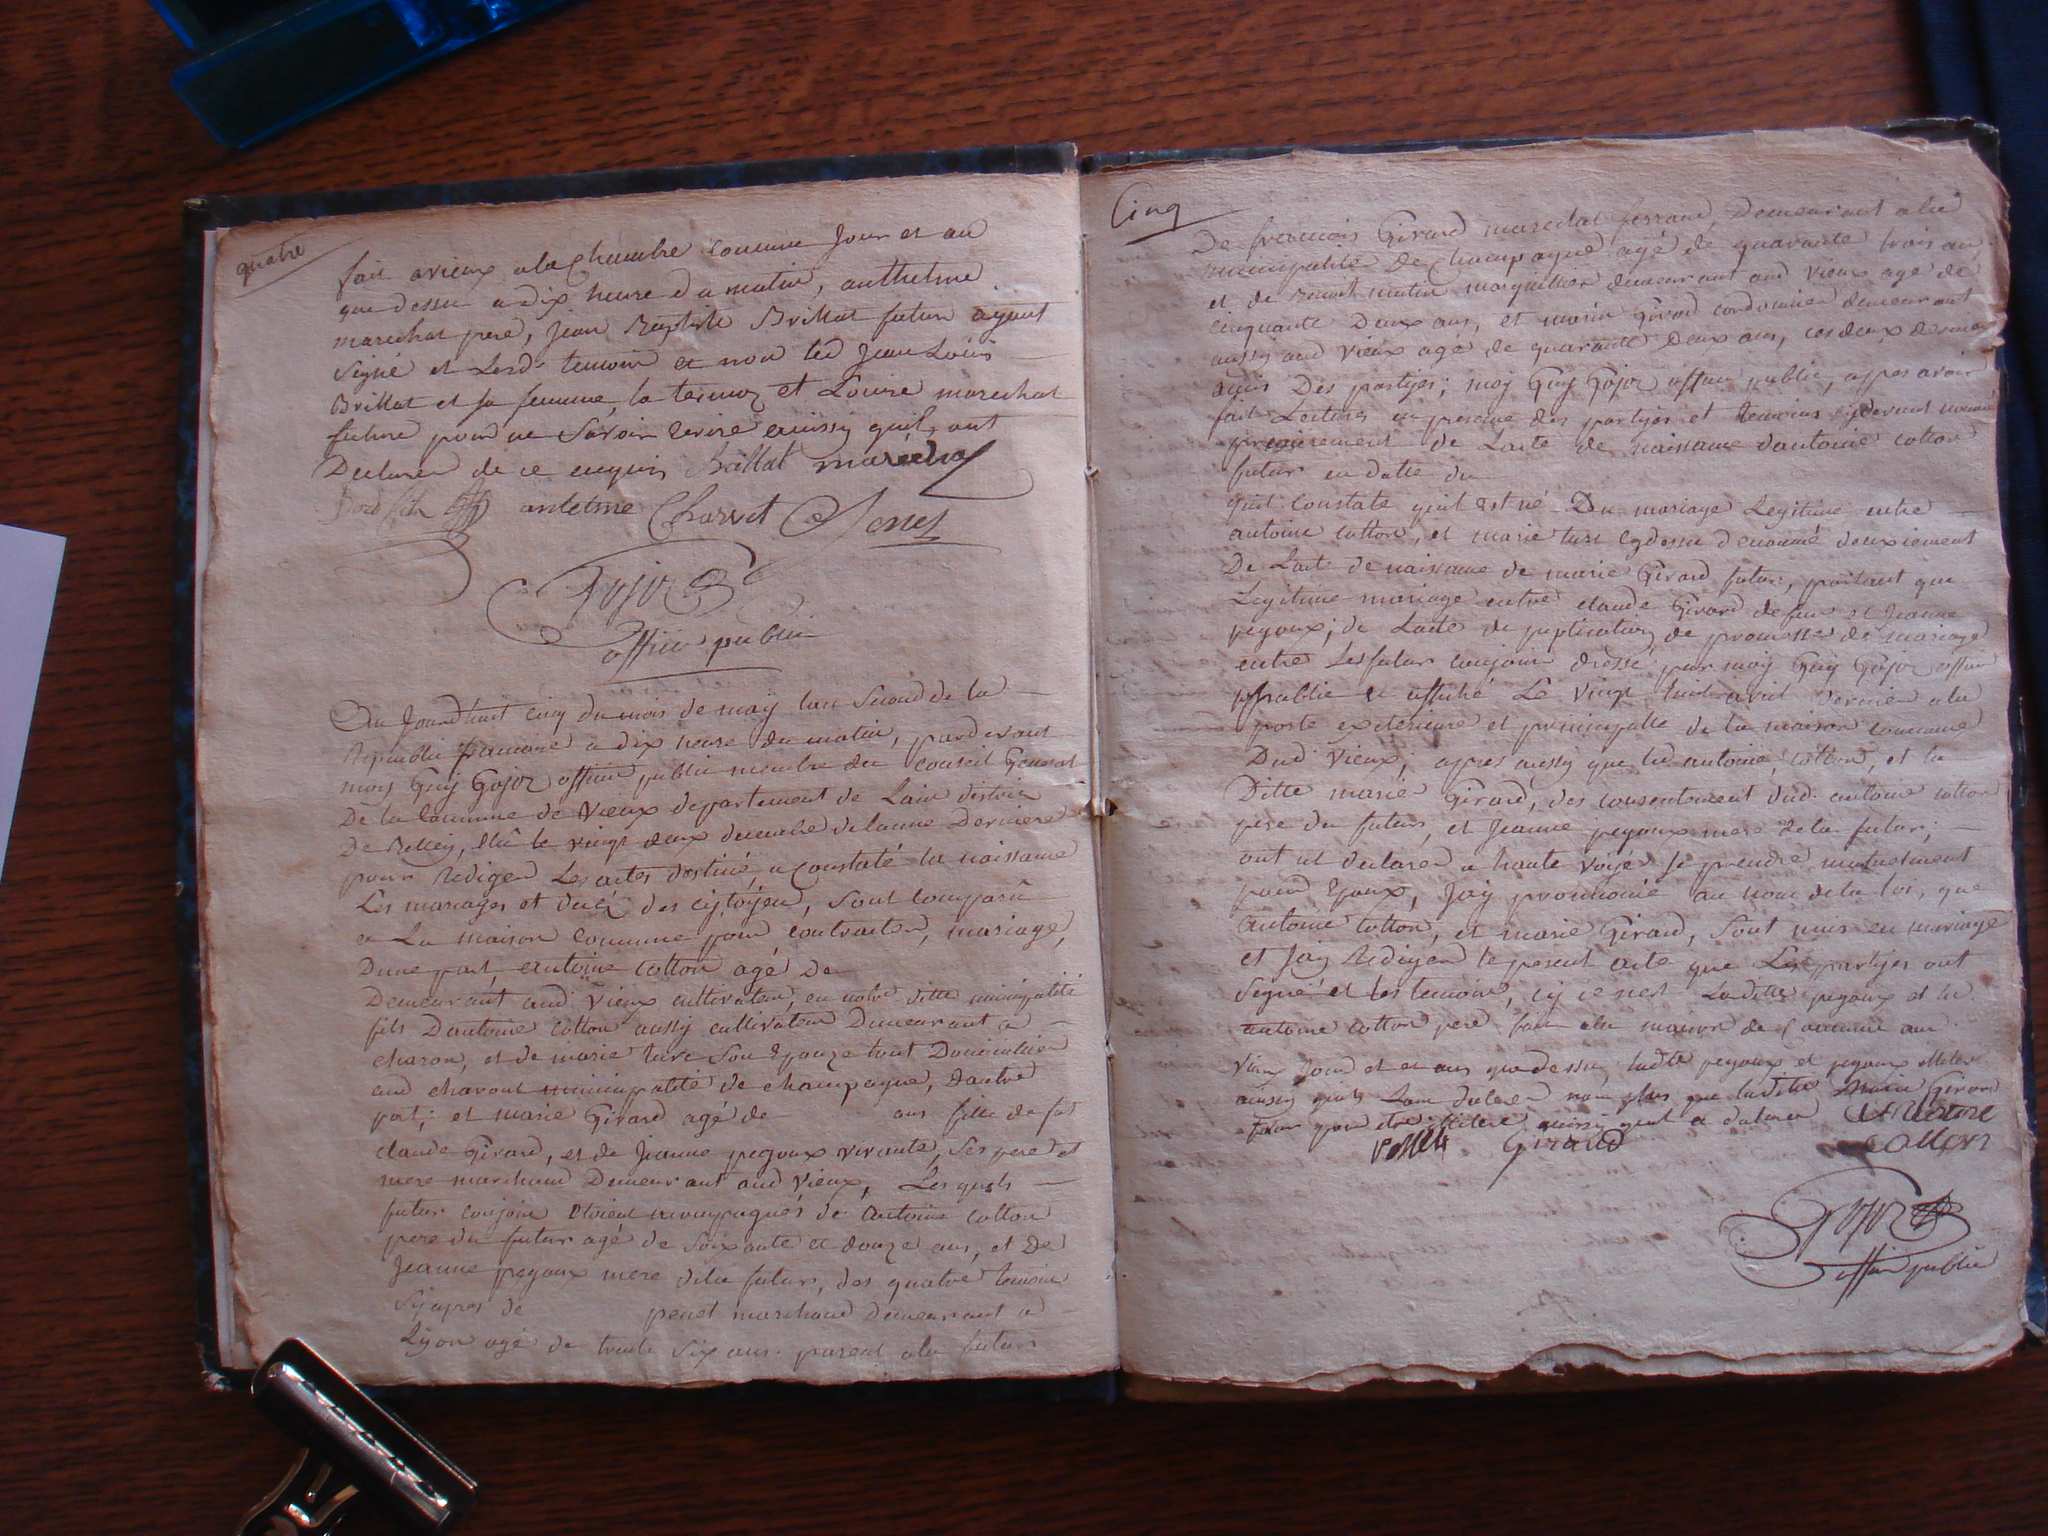 quatre
fait a vieux a la Chambre comune Jour et an
que dessu a dix heure du matin, anthelme
marechal pere, Jean Baptiste Brillat futur ayant
Signé et Lesd. temoin et non led Jean Loüis
Brillat et sa femme, la termoz et Louise marechal
future pour ne Savoir ecrire ainssy quil, ont
Declarer de ce enquis Brillat marechal
antelme Charvet
Gojoz
officie public
Au Jourdhuit cinq du mois de may lan Second de la
Republic francoise a dix heure du matin, pardevant
moy Guy Gojoz officier public membre du Conseil General
De la Commune de Vieux departement de Lain district
De Belley, Elû le vingt deux decembre de lanné Derniere
pour Rediger Les actes destiné, a Constaté la naissance
Les mariages et decé des citoÿen, Sont Comparû
a La maison Commune pour contracter, mariage,
Dune part, antoine Cotton agé de
Demeurant aud. Vieux cultivateur, en notre ditte municipalité
fils Dantoine Cotton aussy cultivateur Demeurant a
charon, et de marie ture Son Epouze tout Domicilier
aud charont municipalité de champagne, Dautre
part; et marie Girard agé de ans fille de fut
claude Girard, et de Jeanne pegoux vivante, Ses pere et
mere marchand Demeurant aud Vieux, Les quels
futur conjoin Etoient accompagnés de antoine Cotton
pere du futur agé de Soixante et douze ans, et De
Jeanne pegoux mere de la futur, des quatre temoin
Sy apres de penet marchand demeurant a
Lyon agé de trente Six ans. parent a la futur
Cinq
De francois Girard marechal ferrand, Demeurant a la
municipalité De Champagne agé de quarante trois an
et de Benoit mutin marguillier demeurant aud Vieux age de
cinquante Deux ans, et Girard cordonnier demeurant
aussy aud Vieux age de quarante Deux ans, ces deux dernier
amis Des partyes; moy Guy Gojoz officier public, apres avoir
fait Lecture en presence des partyes et temoins cydevant nommé
premierement de Lacte de naissance dantoine Cotton
futur en datte du
quil constate quil Est né Du mariage Legitime entre
antoine Cotton, et marie ture Cydessu denommé deuxiement
De Lacte de naissance de marie Girard futur, portant que
Legitime mariage entre claude Girard defun et Jeanne
pegoux; de Lacte de puplication de promesse de mariage
entre Les futur conjoin dressé par moy Guy Gojoz officier
public et affiché Le Vingt huit avril dernier a la
porte exterieure et principalle de la maison Commune
Dud Vieux, apres aussy que led antoine Cotton, et la
Ditte marie Girard, des consentement dud. antoine Cotton
pere du futur, et Jeanne pegoux mere de la futur;
ont declarer a haute Voÿe Se prendre mutuelment
pour Epoux, Jay prononcé au nom de la loi, que
antoine Cotton, et marie Girard, Sont unis en mariage
et Jay Rediger le present acte que Les partyes ont
Segné et les temoins, Sy ce nest La ditte pegoux et led
antoine Cotton pere fait a la maison de Commune aud
Vieux Jour et an que dessu, ladte pegoux et
aussy quils Lon declarer non plus que la ditte Marie Girard
pour ainssy quil a declarer antoine
Girard Cotton
Gojoz
officier public